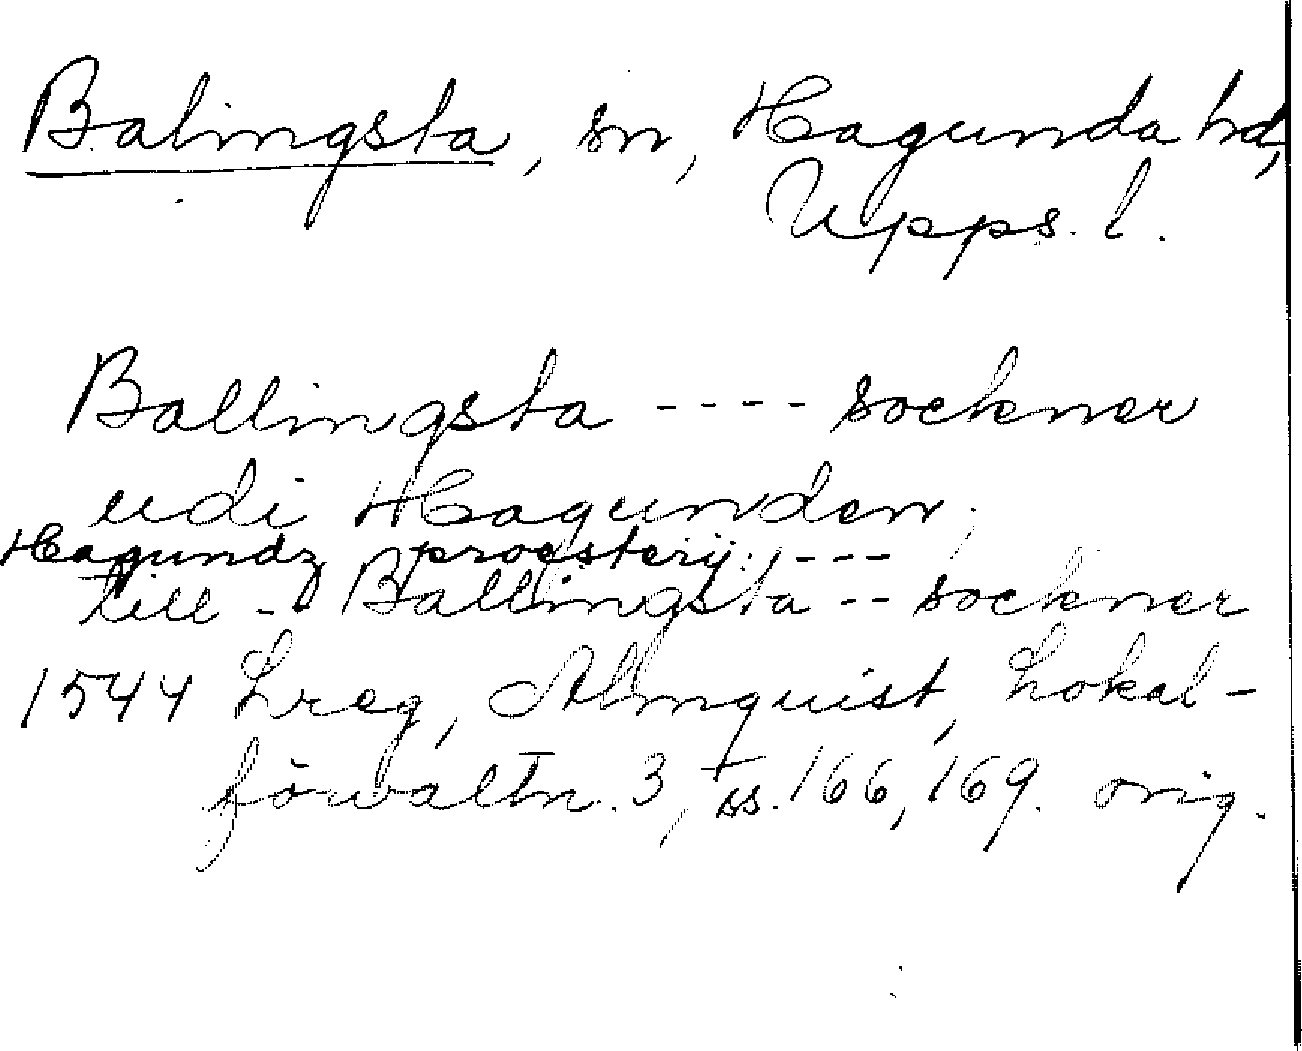 Balingsta, sn, Hagunda hd,
Upps. l.
Ballingsta ---- sockner
udi Hagunden;
Hagundz proesterij: ---
till -- Ballingsta -- socknar
1544 Lreg, Almquist, Lokal-
förvaltn. 3, ss. 166, 169. orig.